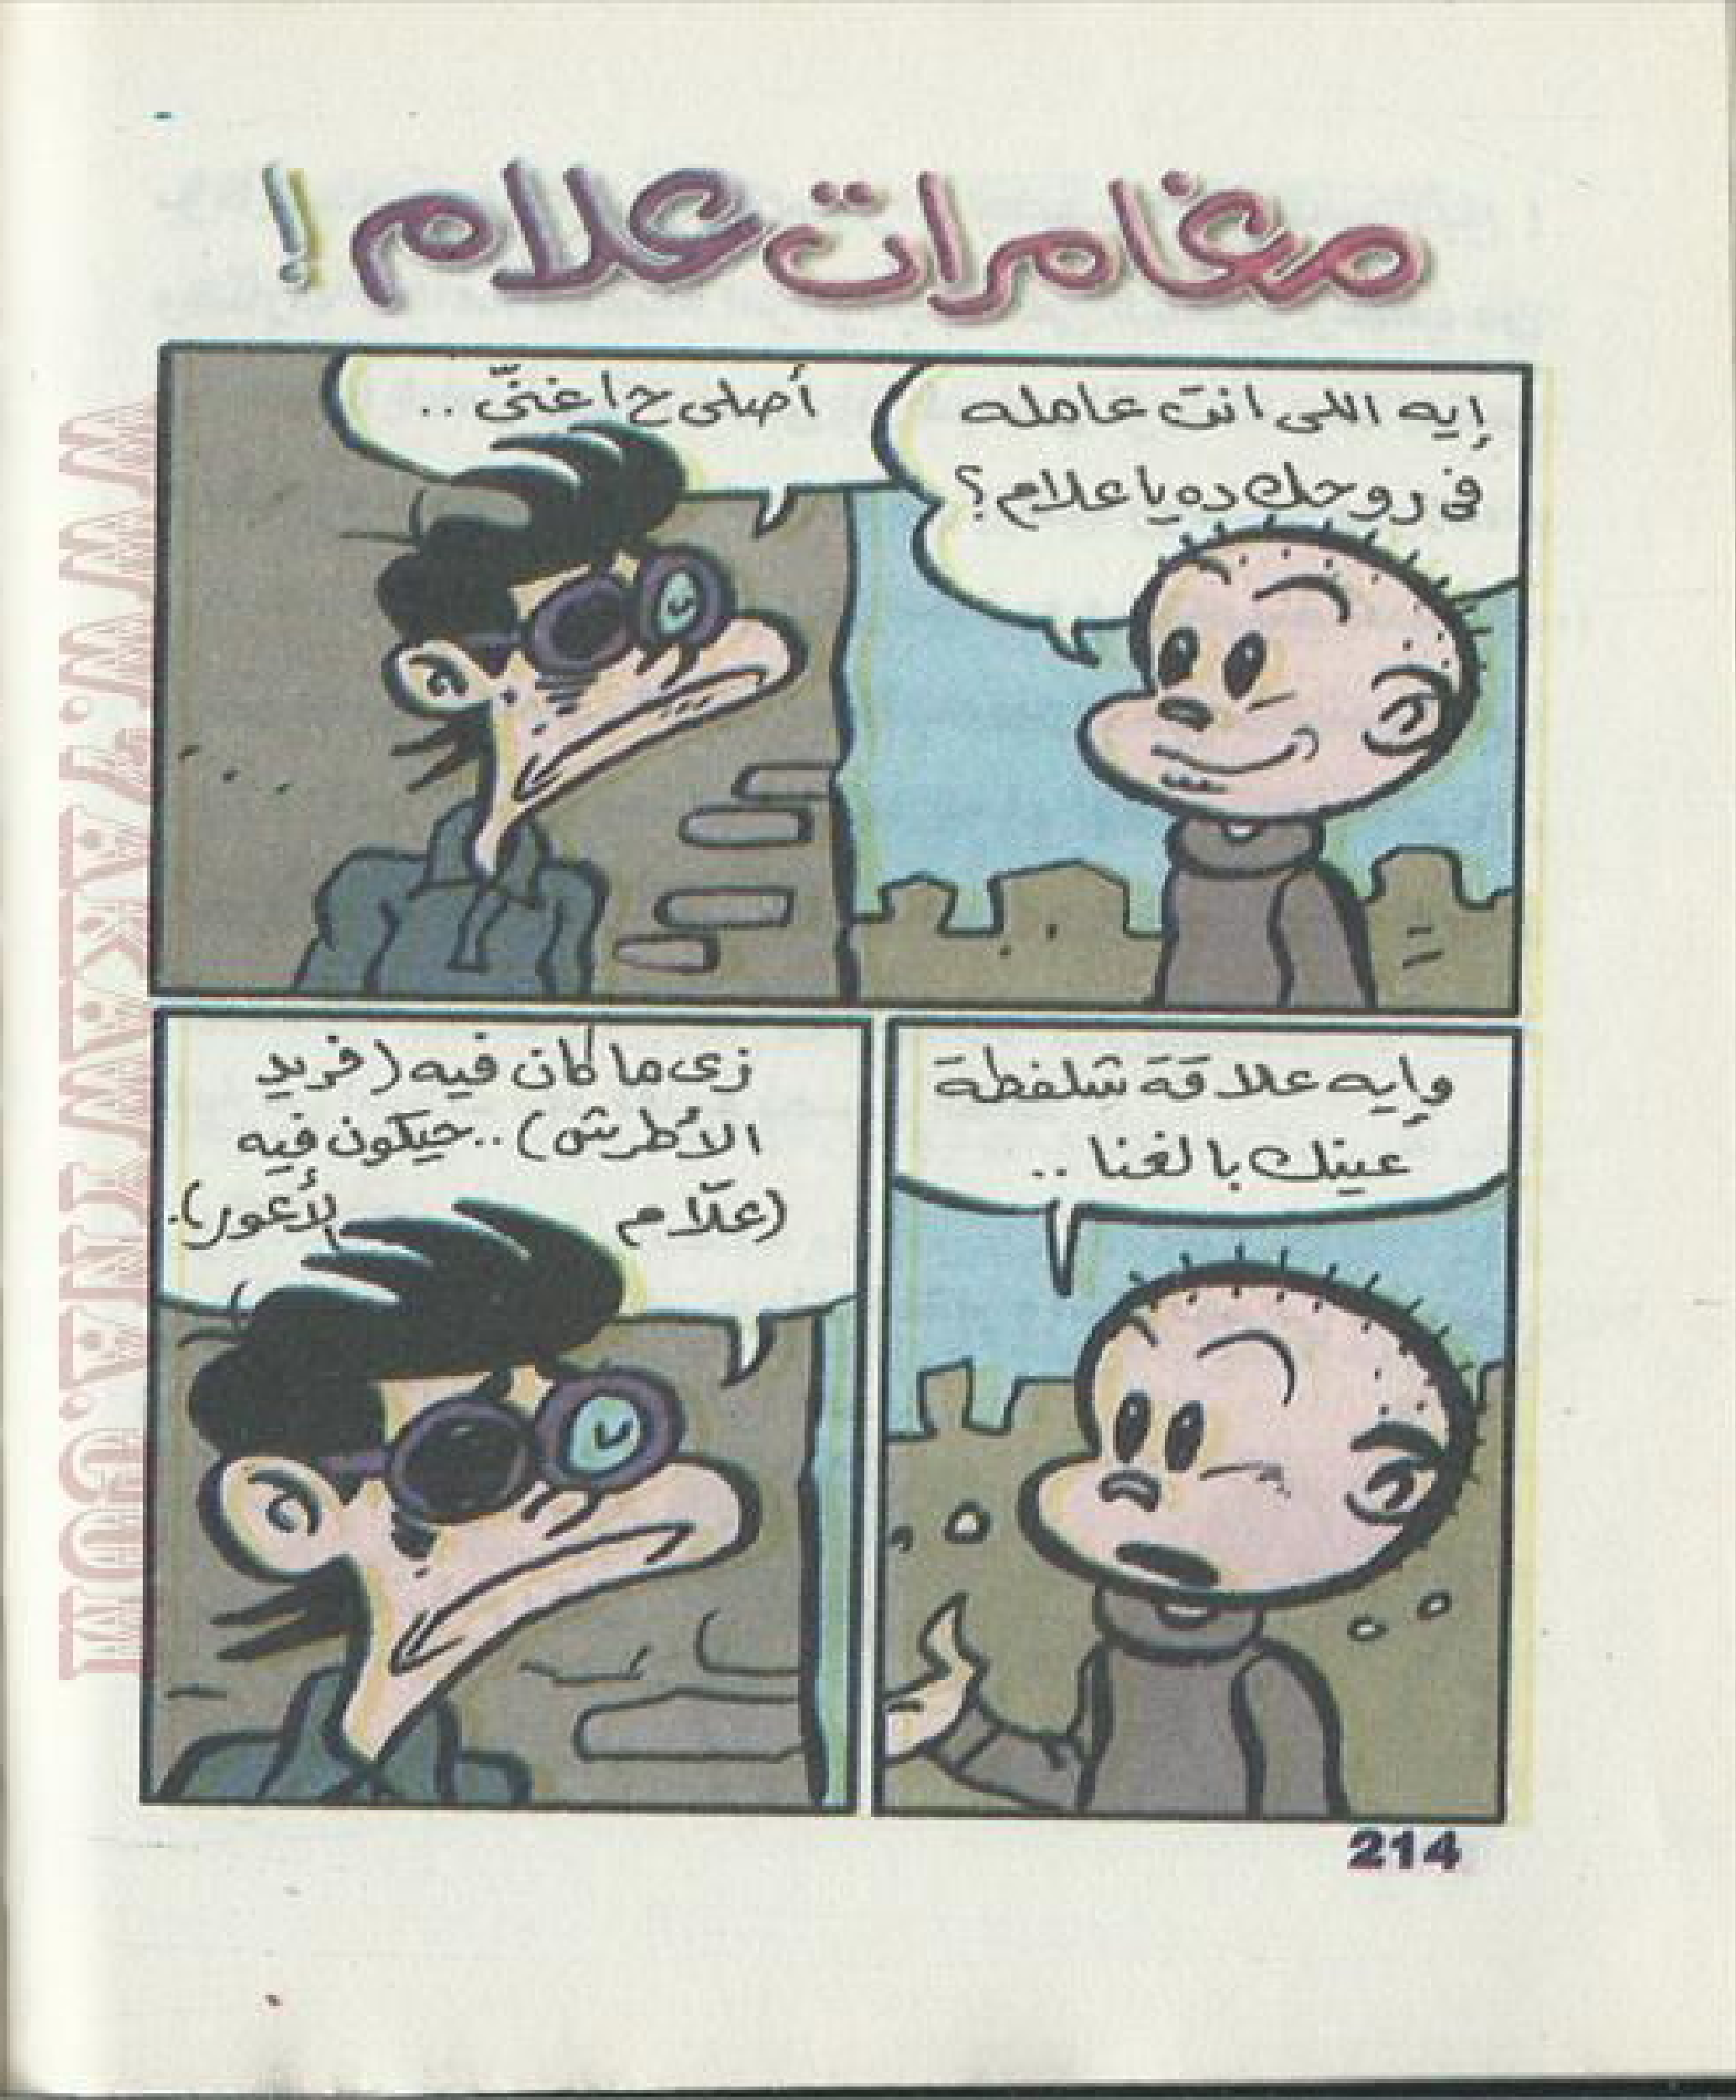 مغامرات علام !
إيه اللى انت عامله
فى روحك ده يا علام؟
أصلى ح اغنّى ..
وإيه علاقة شلفطة
عينك بالغنا ..
زى ما كان فيه (فريد
الأطرش) .. حيكون فيه
(علّام الأعور).
214